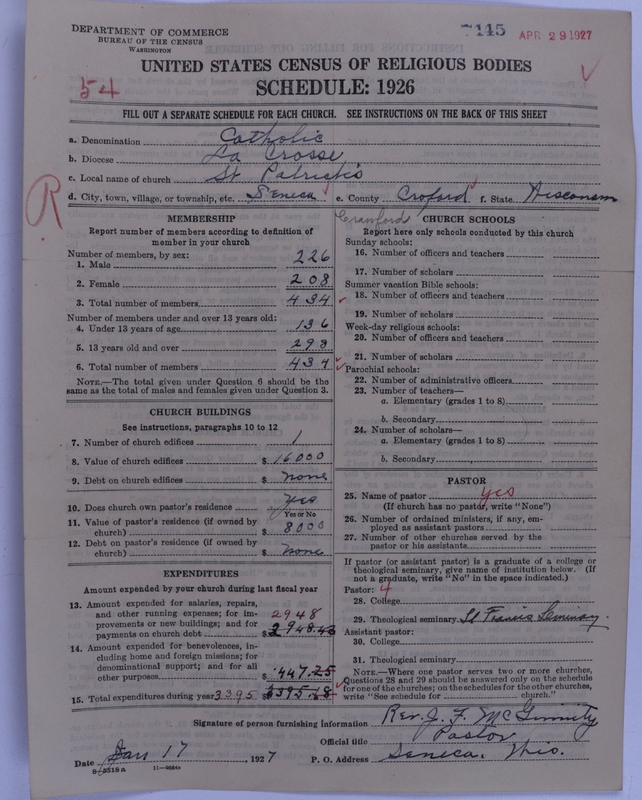 DEPARTMENT OF COMMERCE
BUREAU OF THE CENSUS
WASHINGTON
7145 APR 29 1927
UNITED STATES CENSUS OF RELIGIOUS BODIES
54
SCHEDULE: 1926
FILL OUT A SEPARATE SCHEDULE FOR EACH CHURCH. SEE INSTRUCTIONS ON THE BACK OF THIS SHEET
a. Denomination Catholic
b. Diocese La Crosse
c. Local name of church St Patrick's
d. City, town, village, or township, etc. Seneca e. County Croford f. State Wisconsin
R
Crawford
MEMBERSHIP
Report number of members according to definition of
member in your church
Number of members, by sex:
1. Male 226
2. Female 208
3. Total number of members 434
Number of members under and over 13 years old:
4. Under 13 years of age 136
5. 13 years old and over 298
6. Total number of members 434
NOTE.—The total given under Question 6 should be the
same as the total of males and females given under Question 3.
CHURCH BUILDINGS
See instructions, paragraphs 10 to 12
7. Number of church edifices 1
8. Value of church edifices $ 16000
9. Debt on church edifices $ none
10. Does church own pastor's residence yes
Yes or No
11. Value of pastor's residence (if owned by
church) $ 8000
12. Debt on pastor's residence (if owned by
church) $ none
EXPENDITURES
Amount expended by your church during last fiscal year
13. Amount expended for salaries, repairs,
and other running expenses; for im- 2948
provements or new buildings; and for
payments on church debt $ 2948.43
14. Amount expended for benevolences, in-
cluding home and foreign missions; for
denominational support; and for all
other purposes 447.25
15. Total expenditures during year 3395 $ 3395.68
CHURCH SCHOOLS
Report here only schools conducted by this church
Sunday schools:
16. Number of officers and teachers
17. Number of scholars
Summer vacation Bible schools:
18. Number of officers and teachers
19. Number of scholars
Week-day religious schools:
20. Number of officers and teachers
21. Number of scholars
Parochial schools:
22. Number of administrative officers
23. Number of teachers—
a. Elementary (grades 1 to 8)
b. Secondary
24. Number of scholars—
a. Elementary (grades 1 to 8)
b. Secondary
PASTOR
25. Name of pastor yes
(If church has no pastor, write "None")
26. Number of ordained ministers, if any, em-
ployed as assistant pastors
27. Number of other churches served by the
pastor or his assistants
If pastor (or assistant pastor) is a graduate of a college or
theological seminary, give name of institution below. (If
not a graduate, write "No" in the space indicated.)
Pastor: 4
28. College
29. Theological seminary St Francis Seminary.
Assistant pastor:
30. College
31. Theological seminary
NOTE.—Where one pastor serves two or more churches,
Questions 28 and 29 should be answered only on the schedule
for one of the churches; on the schedules for the other churches,
write "See schedule for church."
Signature of person furnishing information Rev. J. F. McGinnity
Official title Pastor
Date Jan 17, 1927 P. O. Address Seneca, Wis.
8-5518a 11-9684a